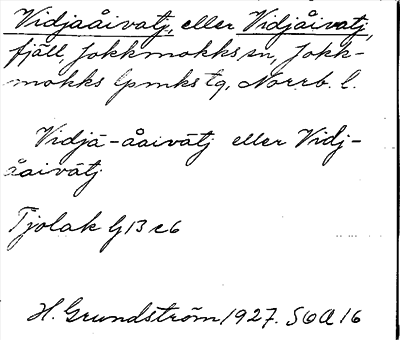 Vidjaåivatj, eller Vidjåivatj,
fjäll, Jokkmokks sn, Jokk-
mokks lpmks tg, Norrb. l.
Vidjā-åaivātj eller Vidj-
åaivātj
Tjolak G13 c6
H. Grundström 1927. SOA 16